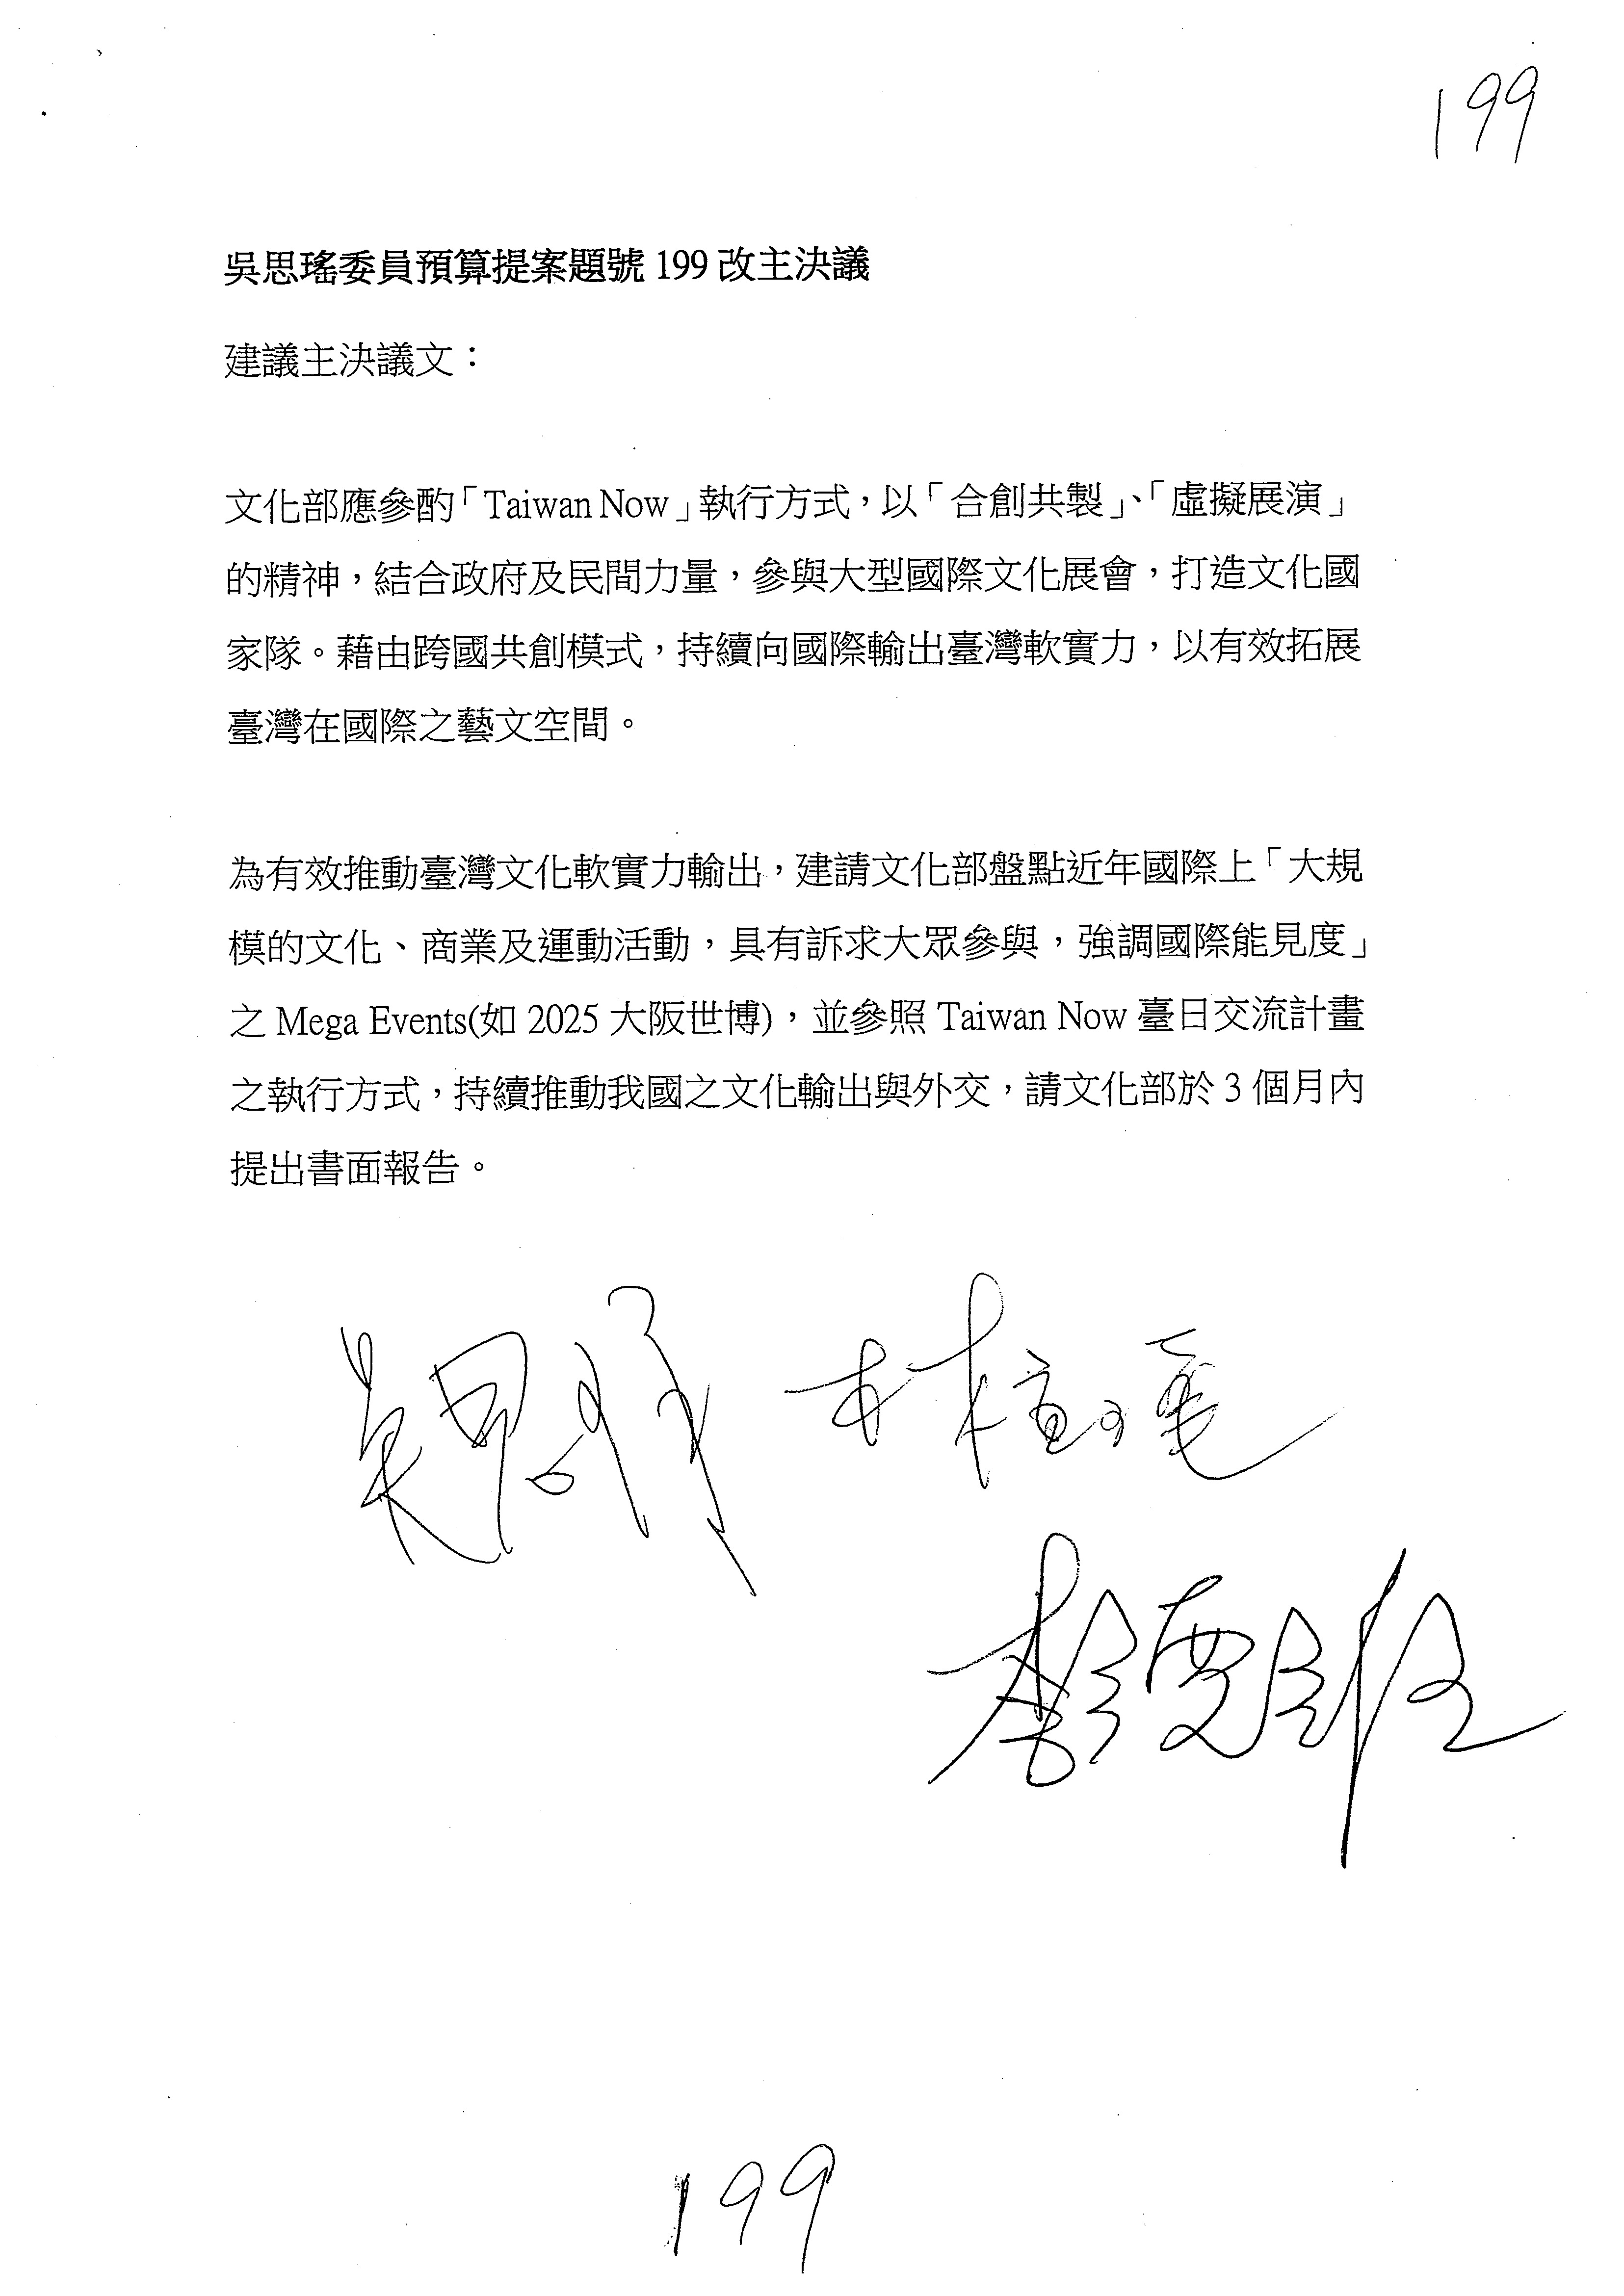 199
吳思瑤委員預算提案題號 199 改主決議
建議主決議文：
文化部應參酌「Taiwan Now」執行方式，以「合創共製」、「虛擬展演」
的精神，結合政府及民間力量，參與大型國際文化展會，打造文化國
家隊。藉由跨國共創模式，持續向國際輸出臺灣軟實力，以有效拓展
臺灣在國際之藝文空間。
為有效推動臺灣文化軟實力輸出，建請文化部盤點近年國際上「大規
模的文化、商業及運動活動，具有訴求大眾參與，強調國際能見度」
之 Mega Events(如 2025 大阪世博)，並參照 Taiwan Now 臺日交流計畫
之執行方式，持續推動我國之文化輸出與外交，請文化部於 3 個月內
提出書面報告。
吳思瑤
199